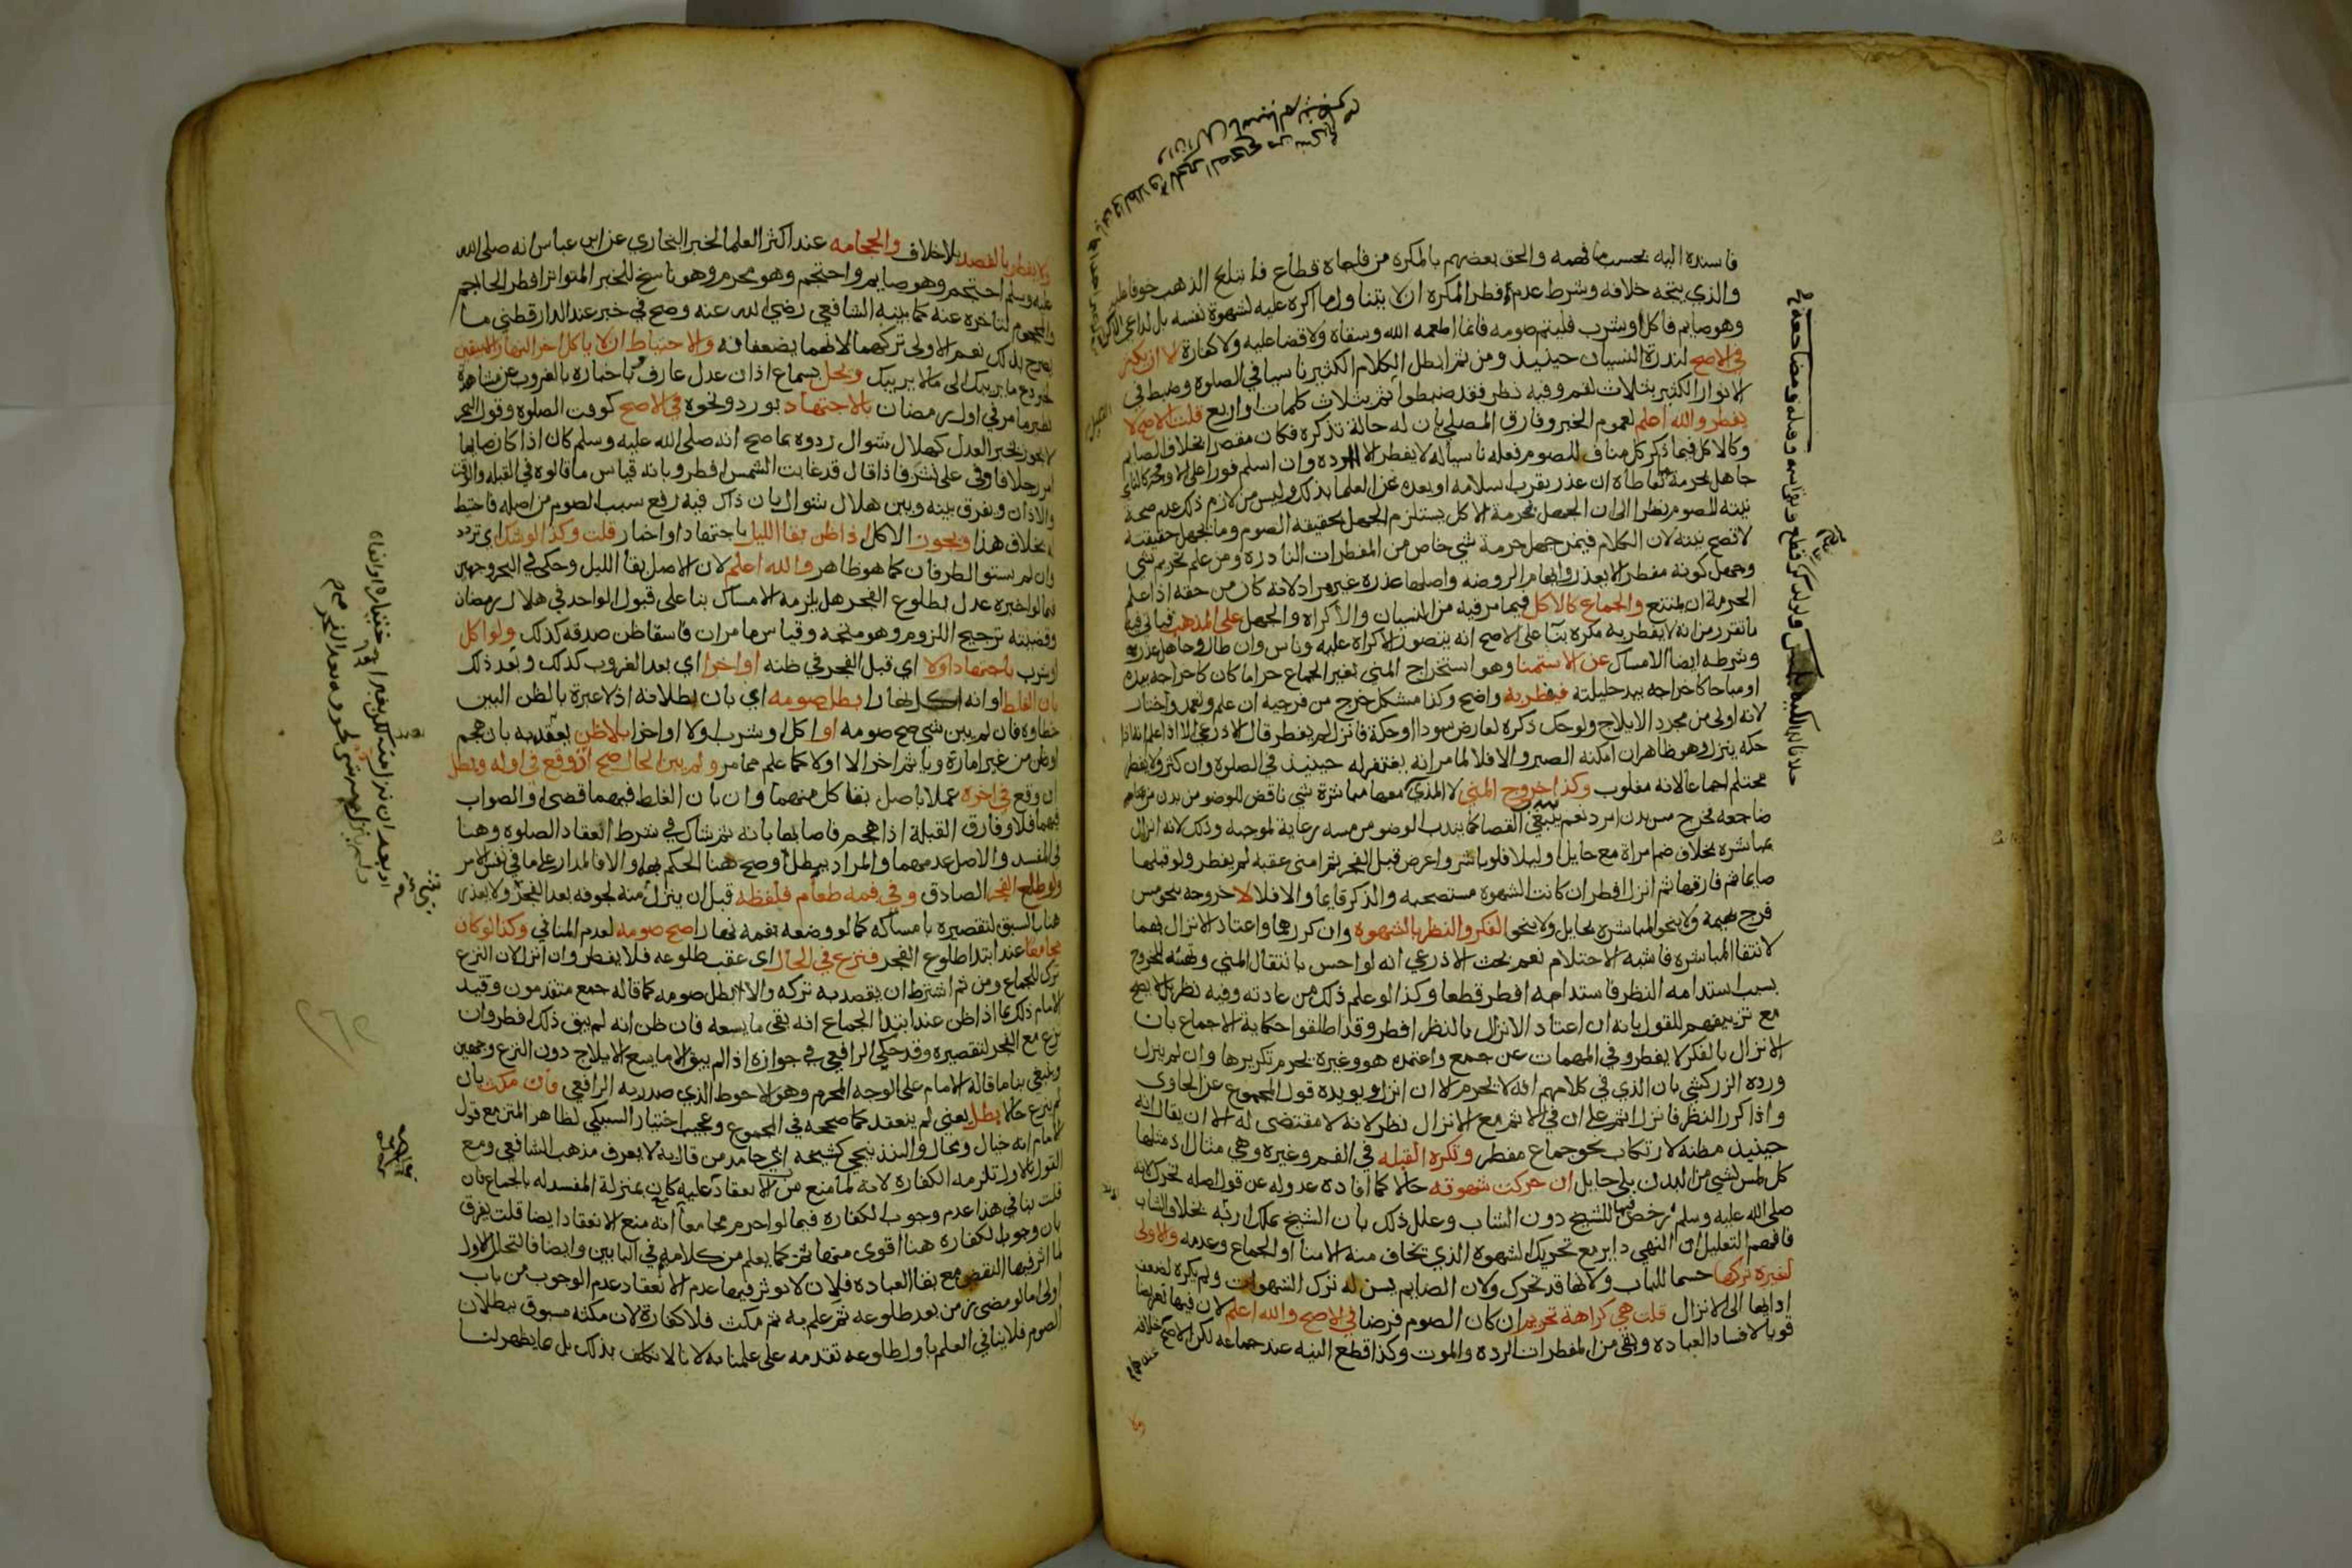 فاسنده اليه بحسب ما فهمه والحق بعضهم بالمكره من فاجاه قطاع فابتلع الذهب خوفا عليه
والذي يتجه خلافه وشرط عدم فطر المكره ان لا يتناول ما اكره عليه لشهوة نفسه بل لداعي الاكراه
وهو صايم فاكل او شرب فليتم صومه فانما اطعمه الله وسقاه ولا قضا عليه ولا كفارة الا ان يكثر
في الاصح لندرة النسيان حينيذ ومن ثم ابطل الكلام الكثير ناسيا في الصلوة وضبط في
الانوار الكثير بثلاث لقم وفيه نظر فقد ضبطوا ثم بثلاث كلمات واربع قلت الاصح لا
يفطر والله اعلم لعموم الخبر وفارق المصلي بان له حالة تذكره فكان مقصرا بخلاف الصايم
وكالاكل فيما ذكر كل مناف للصوم فعله ناسيا له لا يفطر الا الرده وان اسلم فورا
جاهل بحرمة ما تعاطاه ان عذر بقرب اسلامه او بعده عن العلما بذلك وليس من لازم ذلك عدم صحة
نيته للصوم نظرا الى ان الجهل بحرمة الاكل يستلزم الجهل بحقيقة الصوم وما يجهل حقيقته
لا تصح نيته لان الكلام فيمن جهل حرمة شي خاص من المفطرات النادرة ومن علم تحريم شي
وجهل كونه مفطرا لا يعذر وايهام الروضه واصلها عذره غير مراد لانه كان من حقه اذا علم
الحرمة ان يمتنع والجماع كالاكل فيما مر فيه من النسيان والاكراه والجهل على المذهب فياتي فيه
ما تقرر من انه لا يفطر به مكره بنا على الاصح انه يتصور الاكراه عليه وناس وان طال وجاهل عذر به
وشرطه ايضا الامساك عن الاستمنا وهو استخراج المني بغير الجماع حراما كان كاخراجه بيده
او مباحا كاخراجه بيد حليلته فيفطر به واضح وكذا مشكل خرج من فرجيه ان علم وتعمد واختار
لانه اولى من مجرد الايلاج ولو حك ذكره لعارض سودا او حكة فانزل لم يفطر قال الاذرعي الا اذا علم انه اذا
حكه ينزل وهو ظاهر ان امكنه الصبر والا فلا لما مر انه يغتفر له حينيذ في الصلوة وان كثر ولا يفطر
محتلم اجماعا لانه مغلوب وكذا خروج المني لا المذي
ضاجعه فخرج مس بدن امرد نعم ينبغي القضا كما يندب الوضو من مسه رعاية لموجبه وذلك لانه انزال
بمباشره بخلاف ضم امراة مع حايل او ليلا فلو باشر واعرض قبل الفجر ثم امنى عقبه لم يفطر ولو قبلها
صايما ثم فارقها ثم انزل افطر ان كانت الشهوه مستصحبه والذكر قايما والا فلا لا خروجه بنحو مس
فرج بهيمه ولا بنحو المباشره بحايل ولا بنحو الفكر والنظر بالشهوه وان كررهما واعتاد الانزال بهما
لانتفا المباشره فاشبه الاحتلام نعم بحث الاذرعي انه لو احس بانتقال المني وتهيئه للخروج
بسبب استدامه النظر فاستدامه افطر قطعا وكذا لو علم ذلك من عادته وفيه نظر بل لا يصح
مع تزييفهم للقول بانه ان اعتاد الانزال بالنظر افطر وقد اطلقوا حكاية الاجماع بان
الانزال بالفكر لا يفطر وفي المهمات عن جمع واعتمده هو وغيره يحرم تكريرها وان لم ينزل
ورده الزركشي بان الذي في كلامهم انه لا يحرم الا ان انزل ويويده قول المجموع عن الحاوي
واذا كرر النظر فانزل اثم على ان في الاثم مع الانزال نظرا لانه لا مقتضى له الا ان يقال انه
حينيذ مظنه لارتكاب نحو جماع مفطر وتكره القبله في الفم وغيره وهي مثال اذ مثلها
كل لمس لشي من البدن بلا حايل لمن حركت شهوته حالا كما افاده عدوله عن قول اصله تحرك لانه
صلى الله عليه وسلم رخص فيها للشيخ دون الشاب وعلل ذلك بان الشيخ يملك اربه بخلاف الشاب
فافهم التعليل ان النهي داير مع تحريك الشهوه الذي يخاف منه الامنا او الجماع وعدمه والاولى
لغيره تركها حسما للباب ولانها قد تحرك ولان الصايم يسن له ترك الشهوات ولم يكره لضعف
ادايها الى الانزال قلت هي كراهة تحريم ان كان الصوم فرضا في الاصح والله اعلم لان فيها تعريضا
قويا لافساد العباده وبقي من المفطرات الرده والموت وكذا قطع النيه عند جماعه لكن الاصح خلافه
ولا
ولا يفطر بالفصد بلا خلاف والحجامه عند اكثر العلما لخبر البخاري عن ابن عباس انه صلى الله
عليه وسلم احتجم وهو صايم واحتجم وهو محرم وهو ناسخ للخبر المتواتر افطر الحاجم
والمحجوم لتاخره عنه كما بينه الشافعي رضي الله عنه وصح في خبر عند الدارقطني ما
يصرح بذلك نعم الاولى تركهما لانهما يضعفانه والاحتياط ان لا ياكل اخر النهار الا بيقين
لخبر دع ما يريبك الى ما لا يريبك ويحل بسماع اذان عدل عارف وباخباره بالغروب عن مشاهدة
نظير ما مر في اول رمضان بالاجتهاد بورد ونحوه في الاصح كوقت الصلوة وقول البحر
لا يجوز بخبر العدل كهلال شوال ردوه بما صح انه صلى الله عليه وسلم كان اذا كان صايما
امر رجلا فاوفى على نشز فاذا قال قد غابت الشمس افطر وبانه قياس ما قالوه في القبله والوقت
والاذان ويفرق بينه وبين هلال شوال بان ذاك فيه رفع سبب الصوم من اصله فاحتيط
له بخلاف هذا ويجوز الاكل اذا ظن بقا الليل باجتهاد او اخبار قلت وكذا لو شك اي تردد
وان لم يستو الطرفان كما هو ظاهر والله اعلم لان الاصل بقا الليل وحكى في البحر وجهين
فيما لو اخبره عدل بطلوع الفجر هل يلزمه الامساك بنا على قبول الواحد في هلال رمضان
وقضيته ترجيح اللزوم وهو متجه وقياس ما مر ان فاسقا ظن صدقه كذلك ولو اكل
او شرب باجتهاد اولا اي قبل الفجر في ظنه او اخرا اي بعد الغروب كذلك وبعد ذلك
بان الغلط وانه اكل نهارا بطل صومه اي بان بطلانه اذ لا عبرة بالظن البين
خطاوه فان لم يبن شي صح صومه او اكل او شرب اولا او اخرا بلا ظن يعتد به بان هجم
او ظن من غير امارة وياثم اخرا لا اولا كما علم مما مر ولم يبن الحال صح ان وقع في اوله وبطل
ان وقع في اخره عملا باصل بقا كل منهما وان بان الغلط فيهما قضى او الصواب
فيهما فلا وفارق القبلة اذا هجم فاصابها بانه ثم شاك في شرط انعقاد الصلوه وهنا
في المفسد والاصل عدمهما والمراد يبطل وصح هنا الحكم بهما والا فالمدار على ما في نفس الامر
ولو طلع الفجر الصادق وفي فمه طعام فلفظه قبل ان ينزل منه لجوفه بعد الفجر ولا يعذر
هنا بالسبق لتقصيره بامساكه كما لو وضعه بفمه نهارا صح صومه لعدم المنافي وكذا لو كان
مجامعا عند ابتدا طلوع الفجر فنزع في الحال اي عقب طلوعه فلا يفطر وان انزل لان النزع
ترك للجماع ومن ثم اشترط ان يقصد به تركه والا بطل صومه كما قاله جمع متقدمون وقيد
الامام ذلك بما اذا ظن عند ابتدا الجماع انه بقي ما يسعه فان ظن انه لم يبق ذلك افطر وان
نزع مع الفجر لتقصيره وقد حكى الرافعي في جوازه اذا لم يبق الا ما يسع الايلاج دون النزع وجهين
وينبغي بنا ما قاله الامام على الوجه المحرم وهو الاحوط الذي صدر به الرافعي فان مكث بان
لم ينزع حالا بطل يعني لم ينعقد كما صححه في المجموع وعجيب اختيار السبكي لظاهر المتن مع قول
الامام انه خيال ومحال والبندنيجي كشيخه ابي حامد من قال به لا يعرف مذهب الشافعي ومع
القول بالاول تلزمه الكفارة لانه لما منع من الانعقاد عليه كان بمنزلة المفسد له بالجماع فان
قلت ينافي هذا عدم وجوب الكفاره فيما لو احرم مجامعا مع انه منع الانعقاد ايضا قلت يفرق
بان وجوب الكفاره هنا اقوى منها ثم كما يعلم من كلامهم في البابين وايضا فالتحلل الاول
لما اثر فيها النقص مع بقا العباده فلان لا يوثر فيها عدم الانعقاد عدم الوجوب من باب
اولى اما لو مضى زمن بعد طلوعه ثم علم به ثم مكث فلا كفارة لان مكثه مسبوق ببطلان
الصوم فلا ينافي العلم باول طلوعه تقدمه على علمنا به لانا لا نكلف بذلك بل بما يظهر لنا